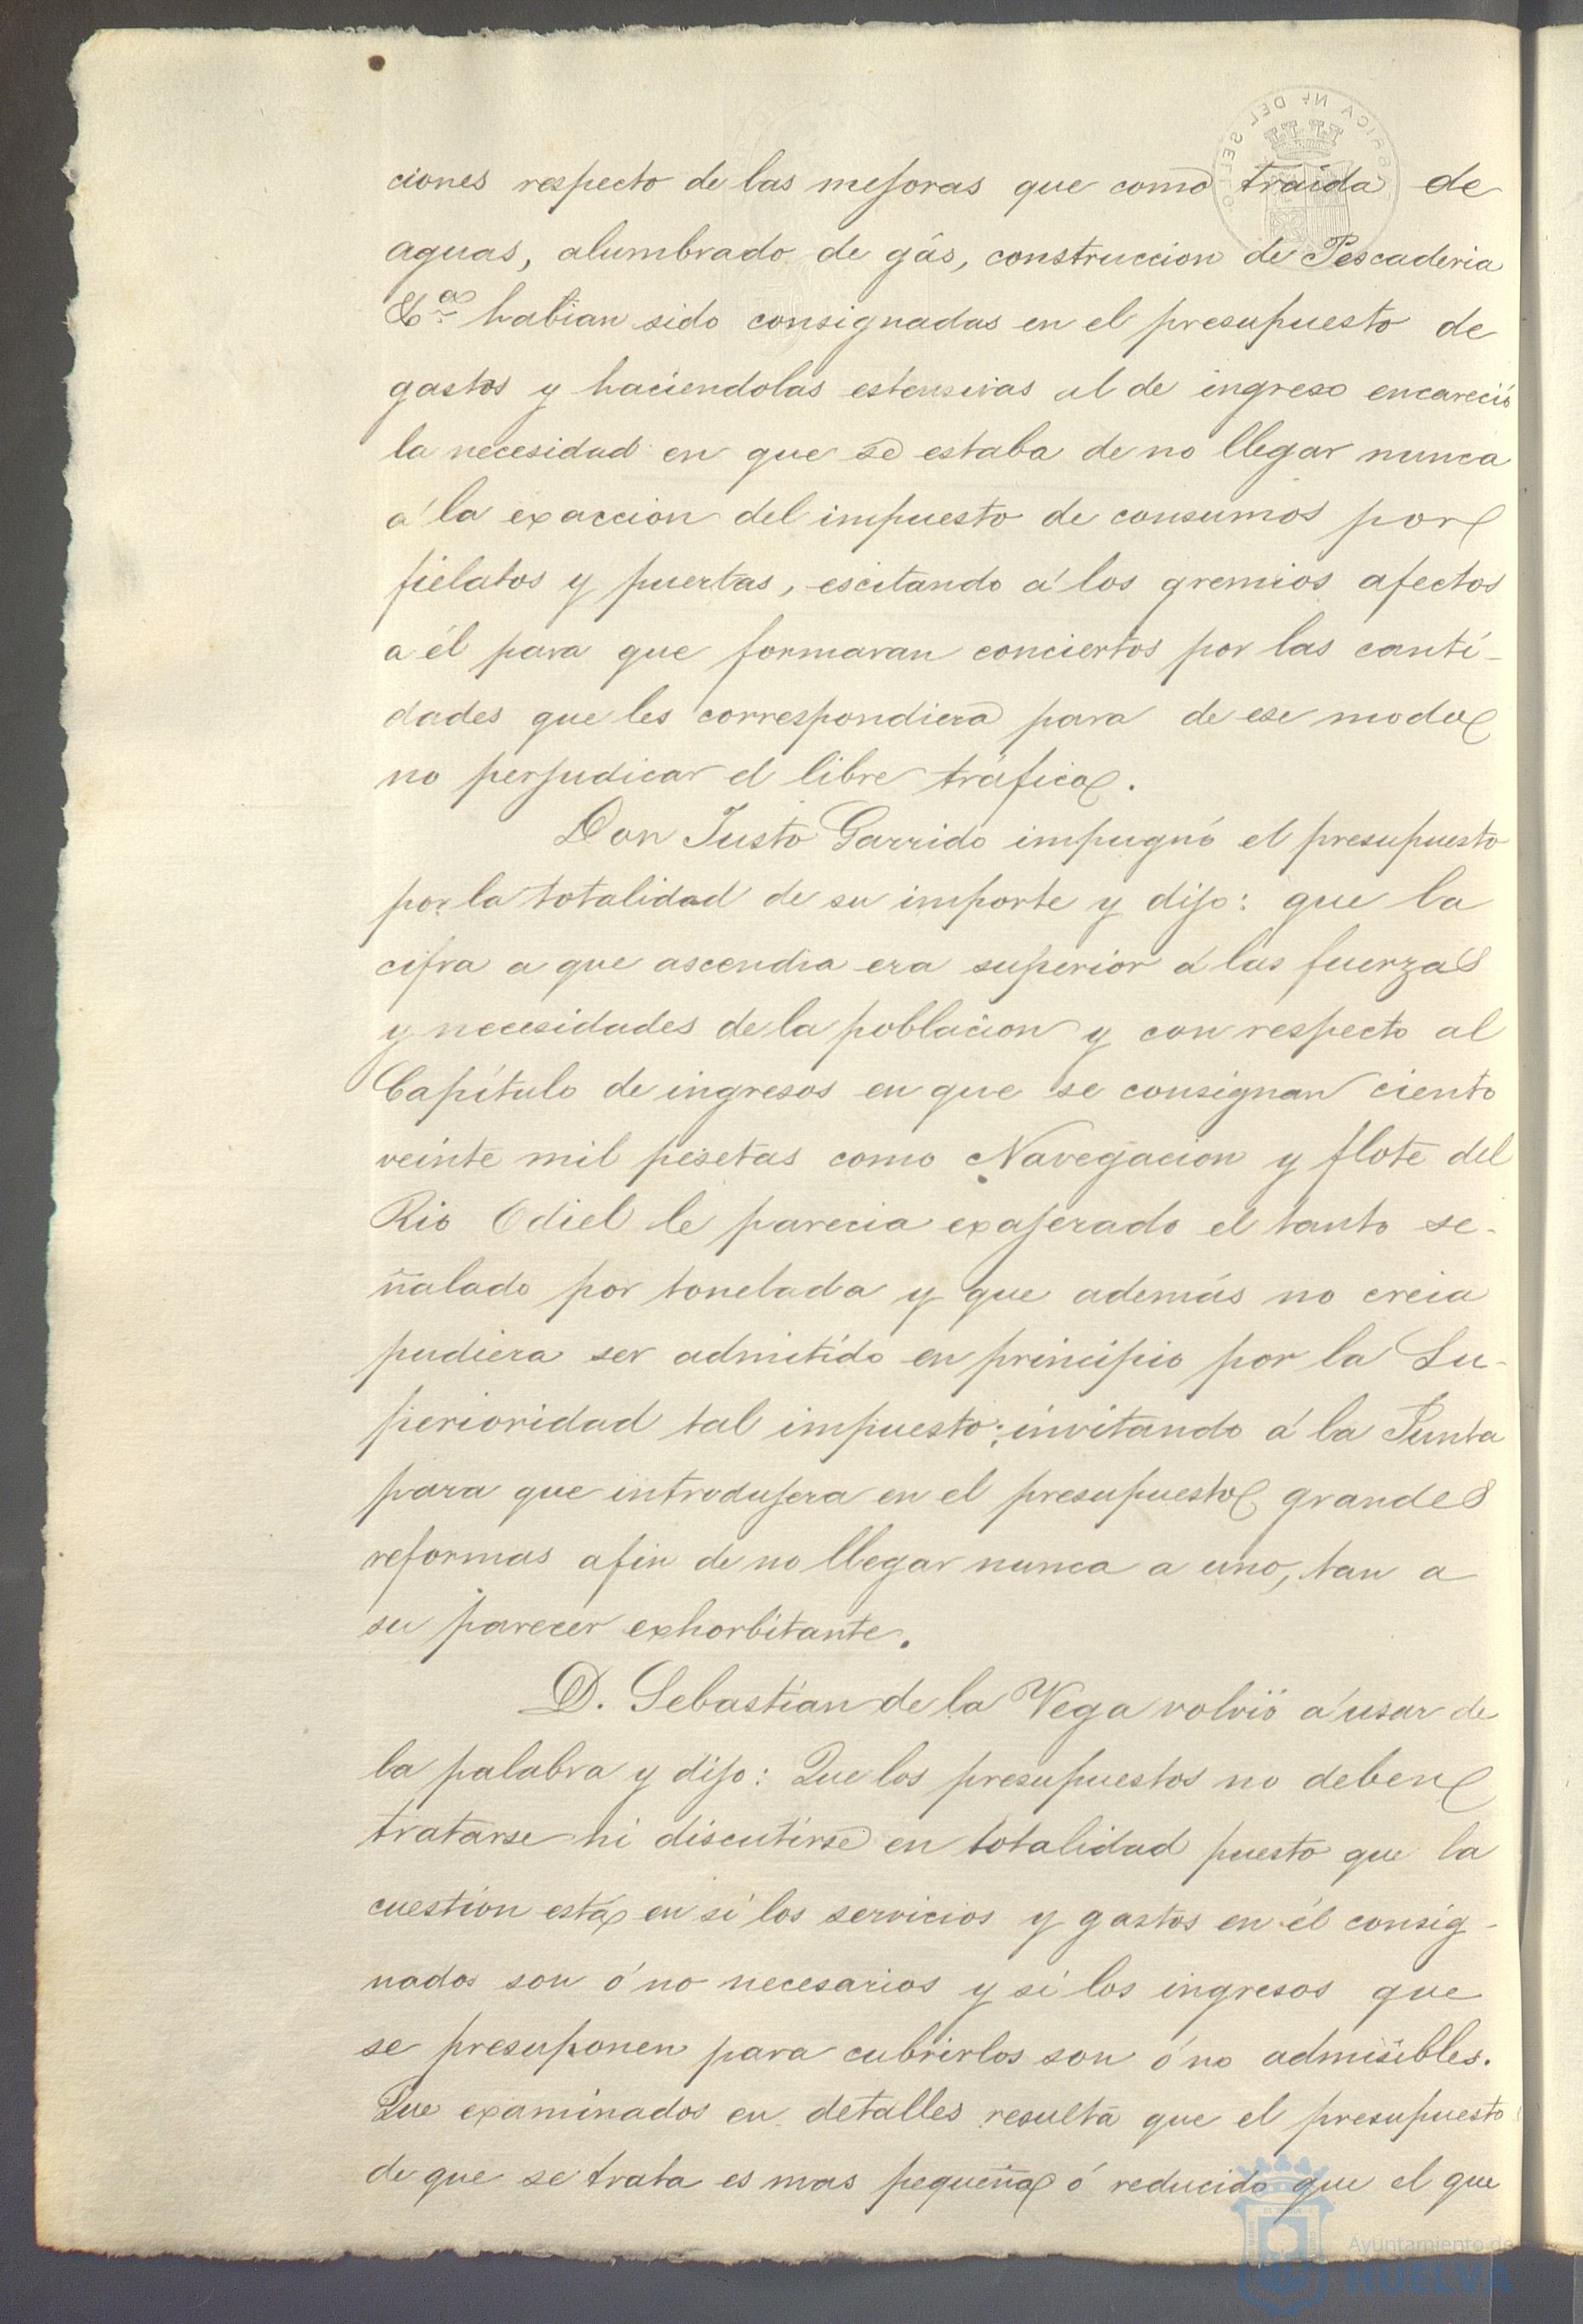 BRICA N.L DEL SELLO
ciones respecto de las mejoras que como traida de
aguas, alumbrado de gás, construccion de Pescaderia
&ª habian sido consignadas en el presupuesto de
gastos y haciendolas estensivas al de ingreso encareció
la necesidad en que se estaba de no llegar nunca
á la exaccion del impuesto de consumos por
fielatos y puertas, escitando á los gremios afectos
a él para que formaran conciertos por las canti-
dades que les correspondiera para de ese modo
no perjudicar el libre tráfico.
Don Justo Garrido impugnó el presupuesto
por la totalidad de su importe y dijo: que la
cifra a que ascendia era superior á las fuerzas
y necesidades de la poblacion y con respecto al
Capítulo de ingresos en que se consignan ciento
veinte mil pesetas como Navegacion y flote del
Rio Odiel le parecia exajerado el tanto se-
ñalado por tonelada y que además no creia
pudiera ser admitido en principio por la Su-
perioridad tal impuesto; invitando á la Junta
para que introdujera en el presupuesto grandes
reformas afin de no llegar nunca a uno, tan a
su parecer exhorbitante.
D. Sebastian de la Vega volvió á usar de
la palabra y dijo: Que los presupuestos no deben
tratarse ni discutirse en totalidad puesto que la
cuestion está en si los servicios y gastos en él consig-
nados son ó no necesarios y si los ingresos que
se presuponen para cubrirlos son ó no admisibles.
Que examinados en detalles resulta que el presupuesto
de que se trata es mas pequeño ó reducido que el que
Ayuntamiento de
HUELVA